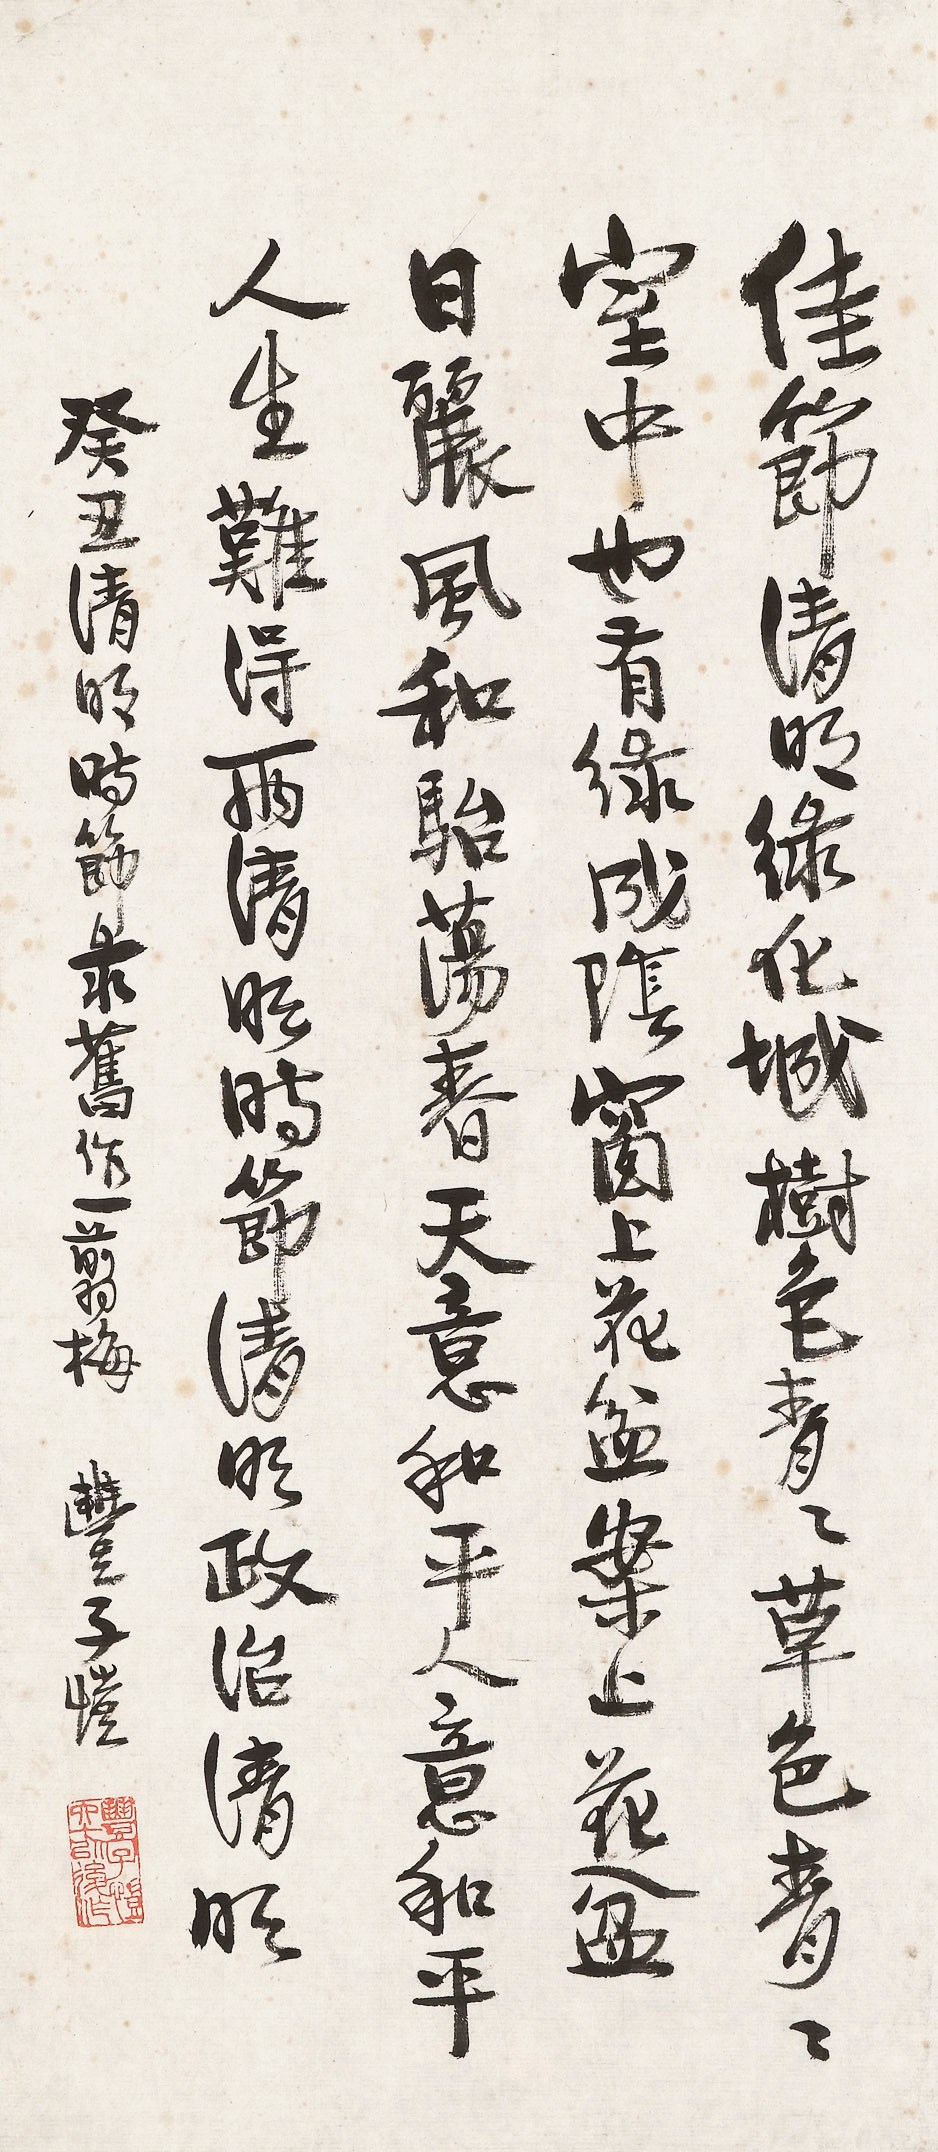 佳節清明綠化城樹色青〻草色青〻
室中也有綠成陰窗上花盆案上花盆
日麗風和駘蕩春天意和平人意和平
人生難得兩清明時節清明政治清明
癸丑清明時節录舊作一剪梅 豐子愷
豐子愷